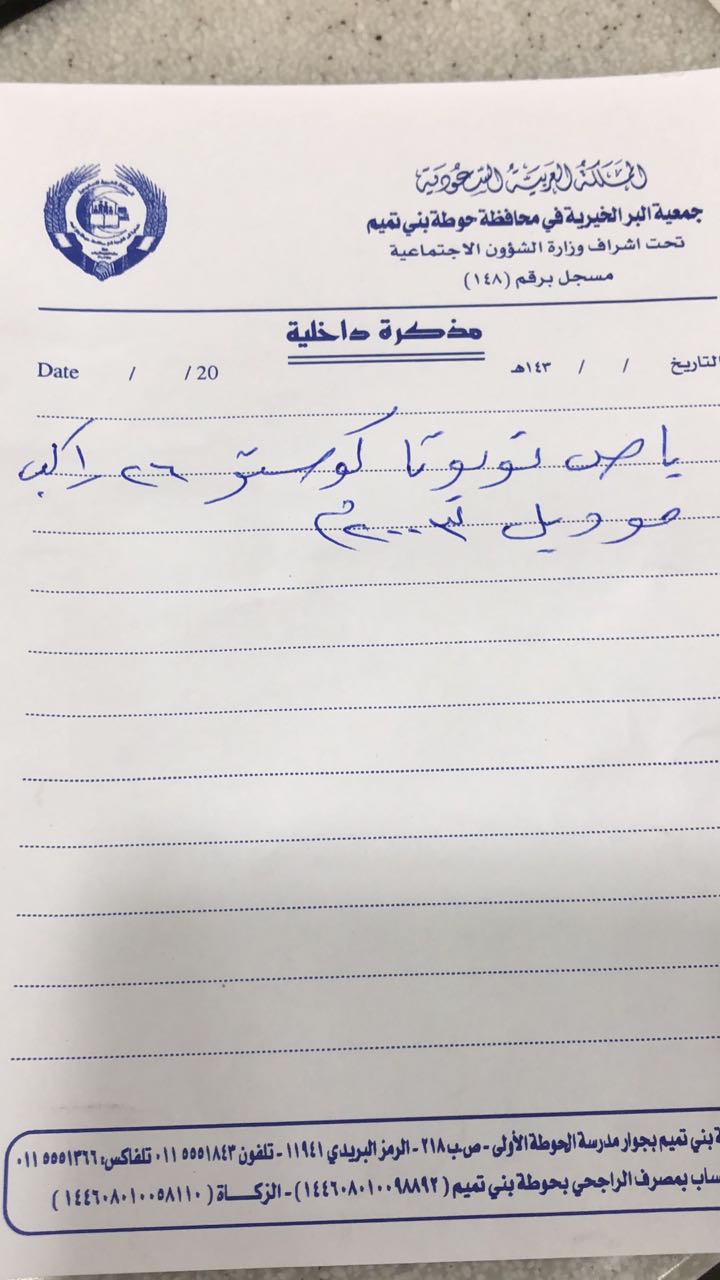 المملكة العربية السعودية
جمعية البر الخيرية في محافظة حوطة بني تميم
تحت اشراف وزارة الشؤون الاجتماعية
مسجل برقم (١٤٨)
مذكرة داخلية
التاريخ / / ١٤٣هـ
Date / / 20
باص تويوتا كوستر ٢٦ راكب
موديل ٢٠٠٣م
ة بني تميم بجوار مدرسة الحوطة الأولى - ص.ب ٢١٨ - الرمز البريدي ١١٩٤١ - تلفون ٠١١٥٥٥١٨٤٣ تلفاكس: ٠١١٥٥٥١٣٦٦
ساب بمصرف الراجحي بحوطة بني تميم (١٤٤٦٠٨٠١٠٠٩٨٨٩٢) - الزكـاة (١٤٤٦٠٨٠١٠٠٥٨١١٠)